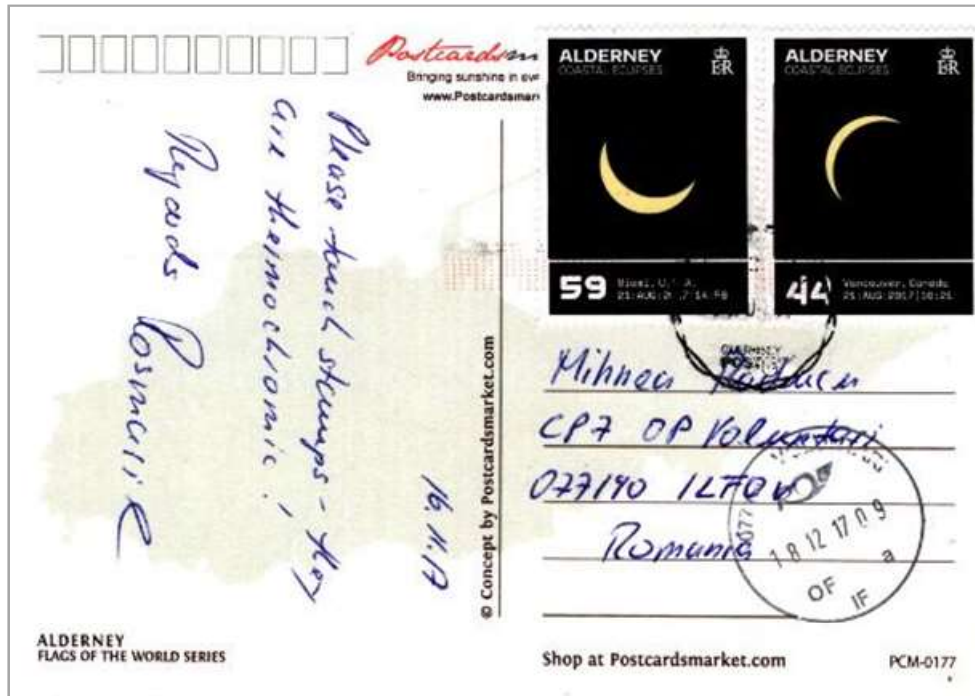 Postcardsm
Bringing sunshine in eve
www.Postcardsmar
ALDERNEY
COASTAL ECLIPSES
ER
59
Miami, U.S.A.
ALDERNEY
COASTAL ECLIPSES
ER
44
Vancouver, Canada
21:AUG:2017|10:21
GUERNSEY
POST
Please touch stamps - they
are thermochromic!
Regards
16.11.17
© Concept by Postcardsmarket.com
Mihnea
CP7 OP Voluntari
077190 ILFOV
Romania
077
18 12 17 09
OF IF a
ALDERNEY
FLAGS OF THE WORLD SERIES
Shop at Postcardsmarket.com
PCM-0177